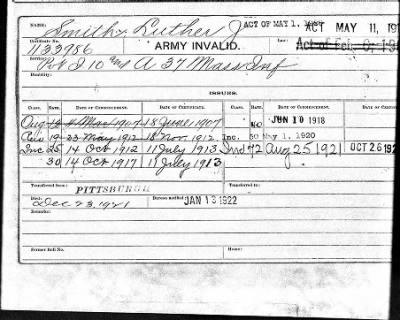 Smith, Luther J. ACT OF MAY 1, ACT MAY 11, 19
Certificate No. ARMY INVALID. Law: Act of Feb. 6, 19
1133986
Service: Pvt I 10 and A 37 Mass Inf
Disability:
ISSUES.
CLASS. RATE. DATE OF COMMENCEMENT. DATE OF CERTIFICATE. CLASS. RATE. DATE OF COMMENCEMENT. DATE OF CERTIFICATE.
Orig 19 4 Mar 1907 18 June 1907 40 JUN 10 1918
Reis 19 23 May 1912 18 Nov. 1912 Inc. 50 May 1, 1920
Inc 25 14 Oct 1912 11 July 1913 Ind 72 Aug 25 1921 OCT 26 192
30 14 Oct 1917 11 July 1913
Transferred from PITTSBURGH Transferred to
Died: Dec 23, 1921 Bureau notified JAN 13 1922
Remarks:
Former Roll No. Home Roll: